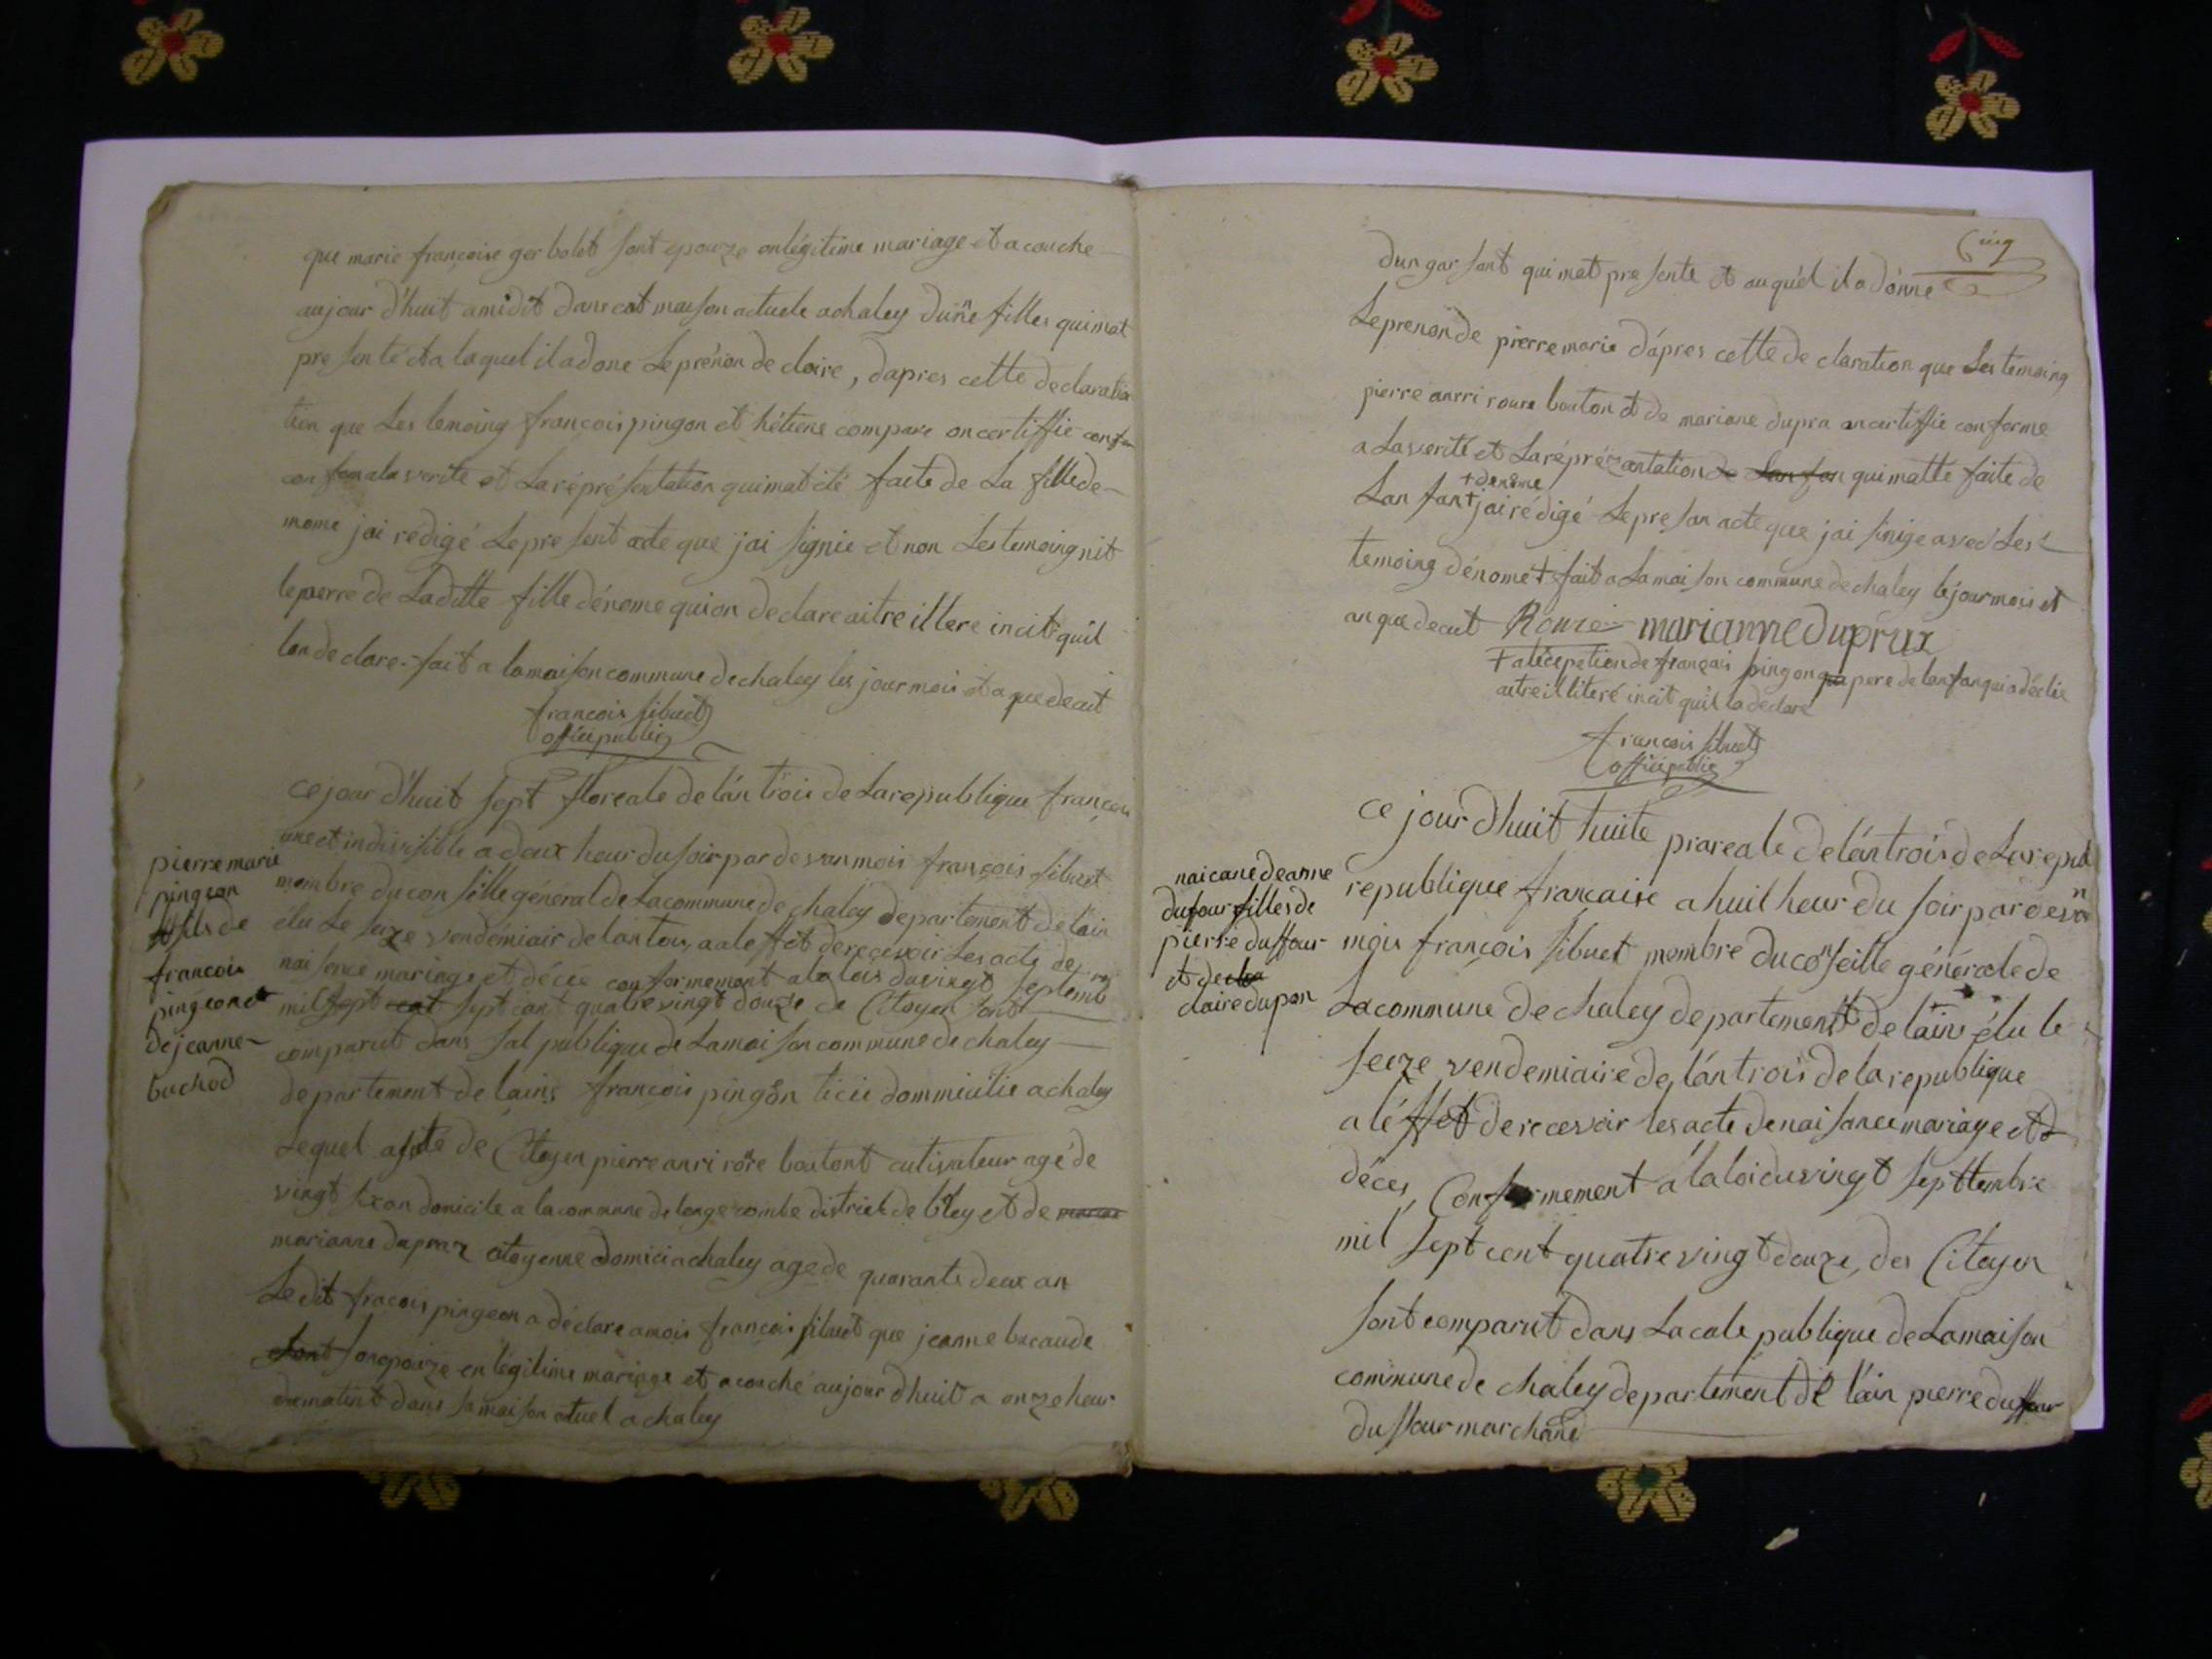 que marie françoise gerbolet sont epouze onlégitime mariage et a couche
aujour d'huit amidit dans cat maison actuele achaley dunne filles quimat
presente et a laquel il a done le prénon de claire, dapres cette declaration
tion que les temoing françois pingon et hétiene compare on certiffie confor
con fom ala verite et la réprésentation quimat été faite de la fille de
mome jai redigé le present acte que jai signie et non les temoing nit
le perre de laditte fille dénome qui on declare aitre illere incit quil
lon declare. fait a la maison commune de chaley les jour mois et a que decut
françois sibuet
officié public
ce jour d'huit sept floreale de l'an trois de la republique françai
une et indivisible a deux heur du soir par devan mois françois sibuet
membre du conseille général de la commune de chaley departement de lain
élu le seize vendémiair de lan trois a aleffet de recevoir les acte de
naisence mariage et déces conformement a la lois du vingt septemb
mil sept cent sept cant quatre vingt douze de Citoyen sont
comparut dans sal publique de la maison commune de chaley
departement de lains françois pingon ticié dommicilie a chaley
lequel asité de Citoyen pierre anri rore boutont cutivateur agé de
vingt sixan domicile a la commune de longecombe district de bley et de
marianne dupraz citoyenne domici a chaley age de quarante deux an
le dit fracois pingeon a déclare a mois françois sibuet que jeanne bucaude
sont son epouze en légitime mariage et a couché aujour d'huit a onze heur
du matint dans sa maison atuel a chaley
pierre marie
pingeon
fils de
francois
pingeon et
de jeanne
buchod
Cinq
dun garsont quimat presente et auquél il a dónne
le prenon de pierre marie d'ápres cette de claration que les témoing
pierre anrri roure bouton et de mariane dupra on certiffie conforme
a la verité et la réprézantation de lanfan qui matte faite de
+ denome
lan fan + jai rédigé le presan acte que jai sinige avec les
temoing dénome + fait a la maison commune de chaley le jour mois et
an que decut Roure marianne dupraz
+ alécepetion de français pingon pere de lanfan qui a déclié
aitre illiteré incit quil la déclaré
françois sibuet
officié public
ce jour d'huit huite prareale de lán trois de la repub
republique francaise a huit heur du soir par devan
mois françois sibuet membre du conseille générale de
la commune de chaley departement de lain élu le
seize vendemiaire de lán trois de la republique
a léffet de recevoir les acte de naisance mariage et d
déces, Conformement a la loi du vingt septtembre
mil sept cent quatre vingt douze, des Citoyen
sont comparut dans la cale publique de la maison
commune de chaley departement dé l'ain pierre duffour
duffour marchand
naicance de anne
dufour filles de
pierre duffour
et de cla
claire dupon